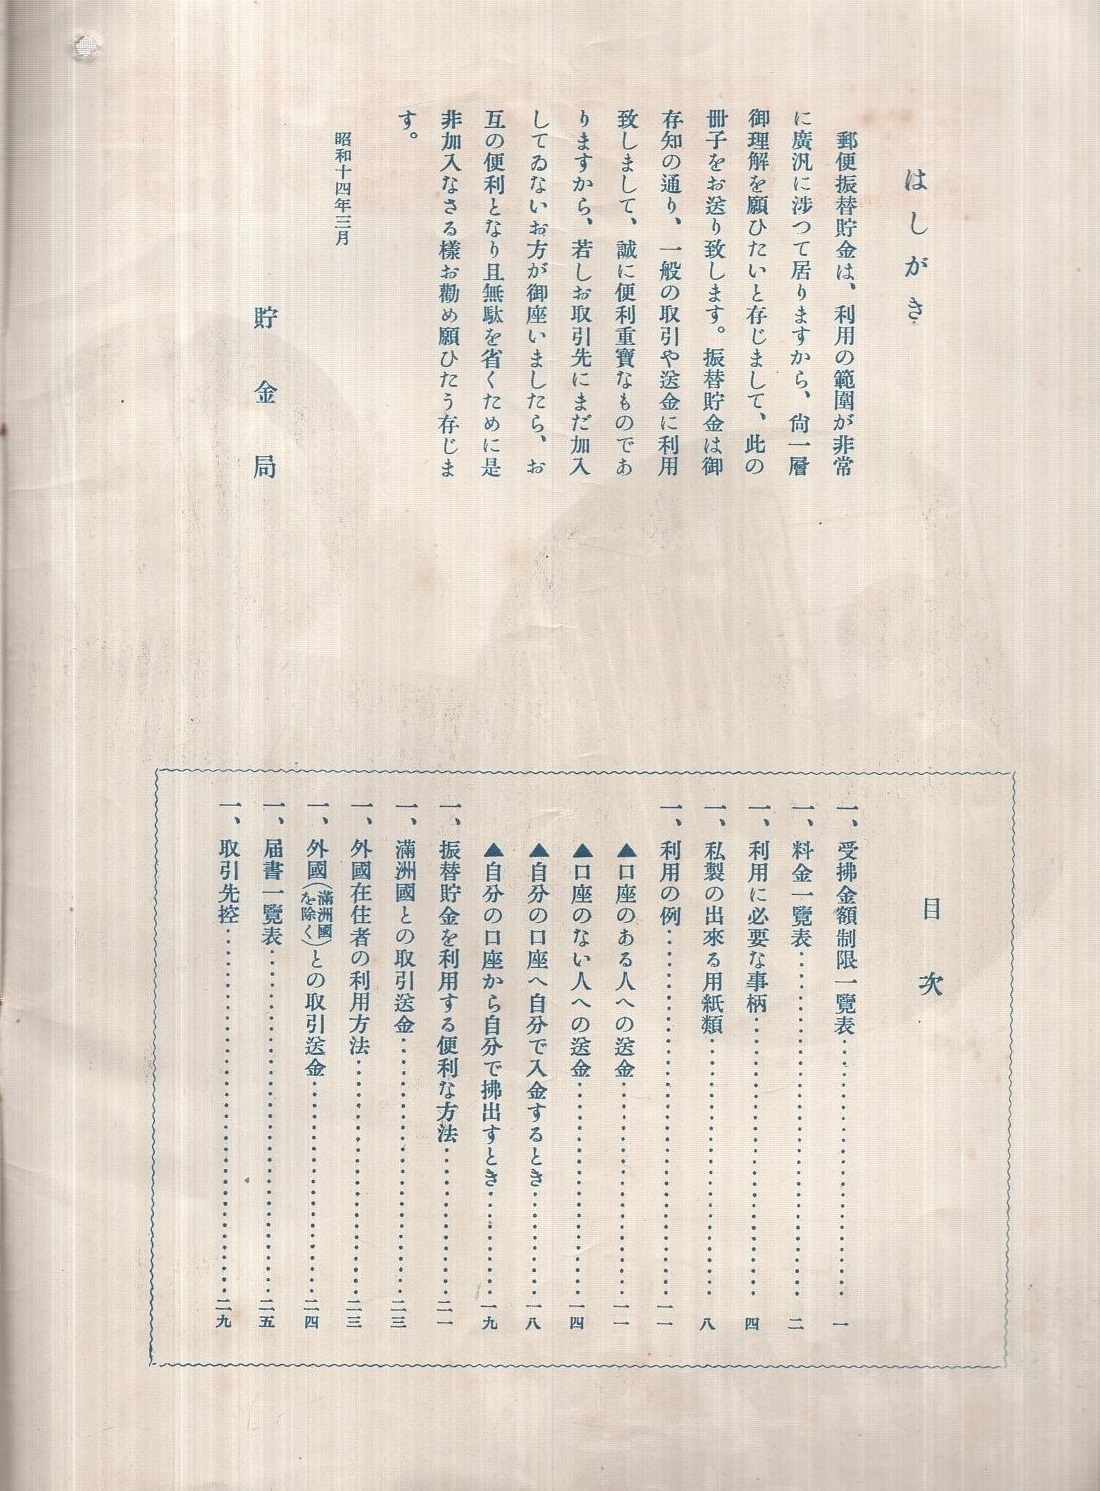 はしがき
郵便振替貯金は、利用の範圍が非常
に廣汎に涉つて居りますから、尙一層
御理解を願ひたいと存じまして、此の
冊子をお送り致します。振替貯金は御
存知の通り、一般の取引や送金に利用
致しまして、誠に便利重寶なものであ
りますから、若しお取引先にまだ加入
してゐないお方が御座いましたら、お
互の便利となり且無駄を省くために是
非加入なさる樣お勸め願ひたう存じま
す。
昭和十四年三月
貯金局
目次
一、受拂金額制限一覽表……………一
一、料金一覽表……………二
一、利用に必要な事柄……………四
一、私製の出來る用紙類……………八
一、利用の例……………一一
▲口座のある人への送金……………一一
▲口座のない人への送金……………一四
▲自分の口座へ自分で入金するとき……………一八
▲自分の口座から自分で拂出すとき……………一九
一、振替貯金を利用する便利な方法……………二一
一、滿洲國との取引送金……………二三
一、外國在住者の利用方法……………二三
一、外國(滿洲國を除く)との取引送金……………二四
一、届書一覽表……………二五
一、取引先控……………二九